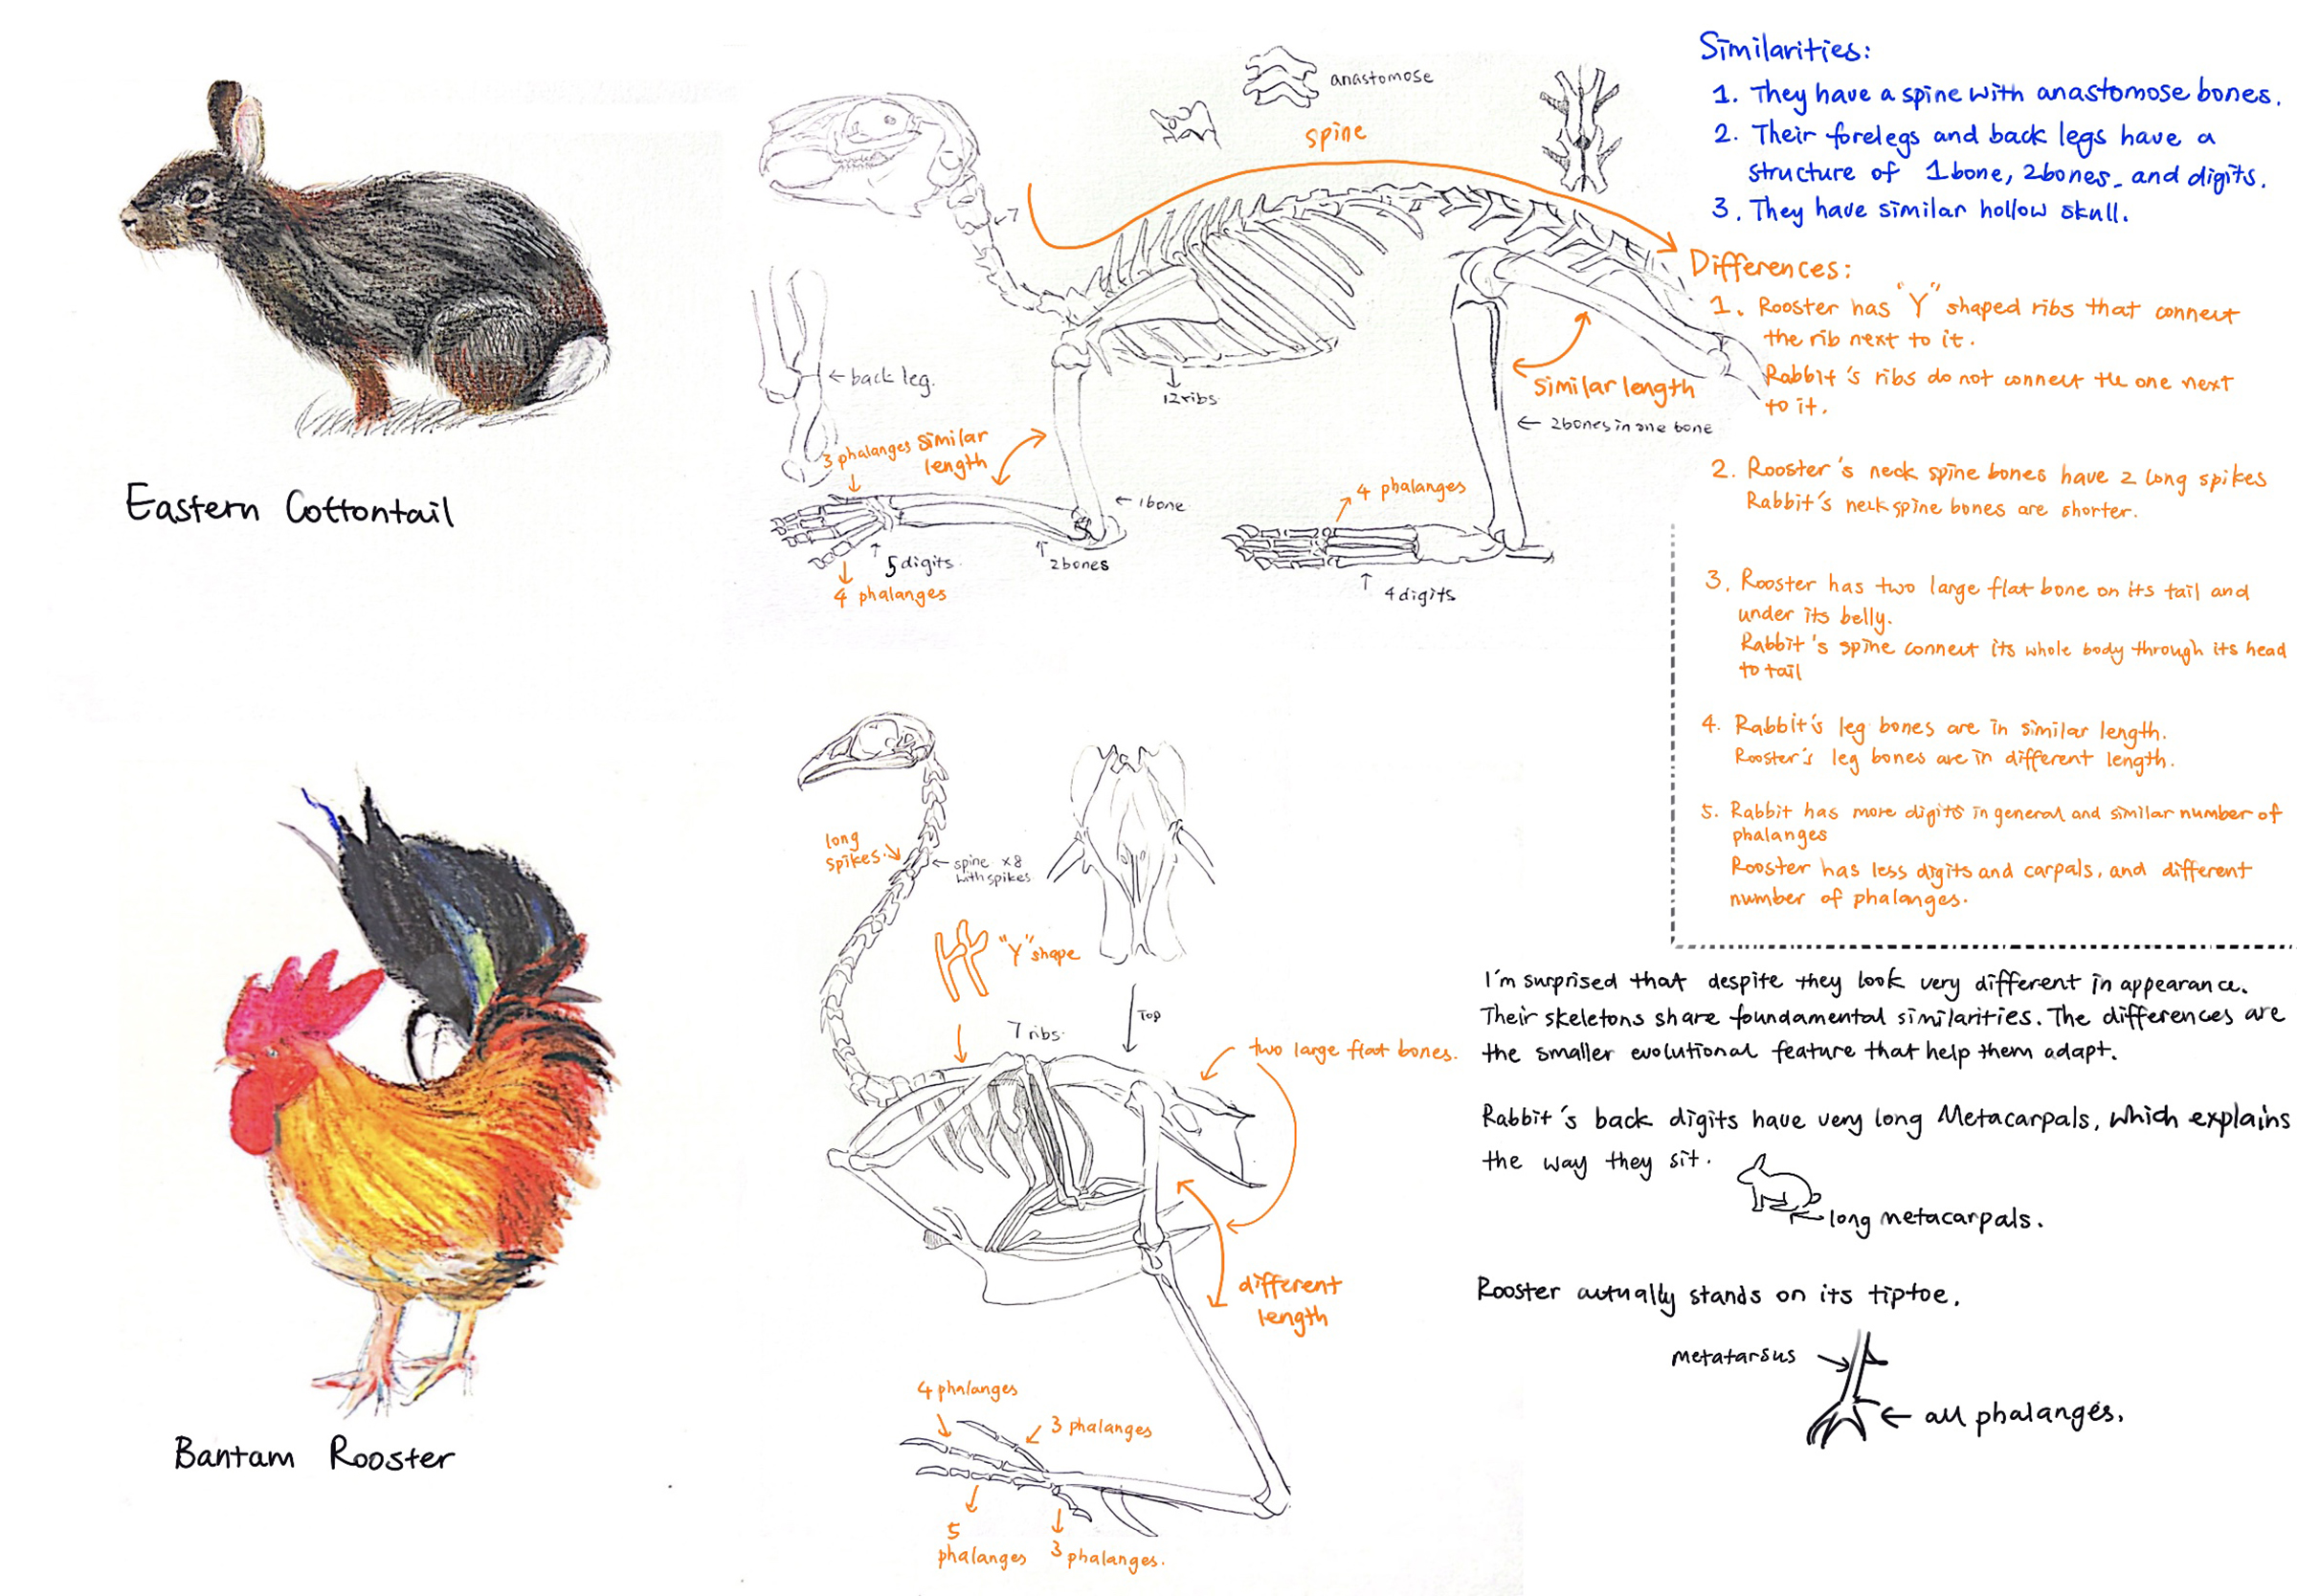 Eastern Cottontail
anastomose
spine
7
← back leg.
12 ribs
similar length
← 2bones in one bone
3 phalanges
similar
length
← 1bone
4 phalanges
5 digits.
2bones
4 phalanges
4 digits
Similarities:
1. They have a spine with anastomose bones.
2. Their forelegs and back legs have a
structure of 1bone, 2bones_ and digits.
3. They have similar hollow skull.
Differences:
1. Rooster has "Y" shaped ribs that connect
the rib next to it.
Rabbit's ribs do not connect the one next
to it.
2. Rooster's neck spine bones have 2 long spikes
Rabbit's neck spine bones are shorter.
3. Rooster has two large flat bone on its tail and
under its belly.
Rabbit's spine connect its whole body through its head
to tail
4. Rabbit's leg bones are in similar length.
Rooster's leg bones are in different length.
5. Rabbit has more digits in general and similar number of
phalanges
Rooster has less digits and carpals, and different
number of phalanges.
Bantam Rooster
long
spikes.
← spine x8
with spikes
"Y" shape
7 ribs
Top
two large flat bones.
different
length
4 phalanges
3 phalanges
5
phalanges
3 phalanges.
I'm surprised that despite they look very different in appearance.
Their skeletons share foundamental similarities. The differences are
the smaller evolutional feature that help them adapt.
Rabbit's back digits have very long Metacarpals, which explains
the way they sit.
long metacarpals.
Rooster actually stands on its tiptoe.
metatarsus
← all phalanges.